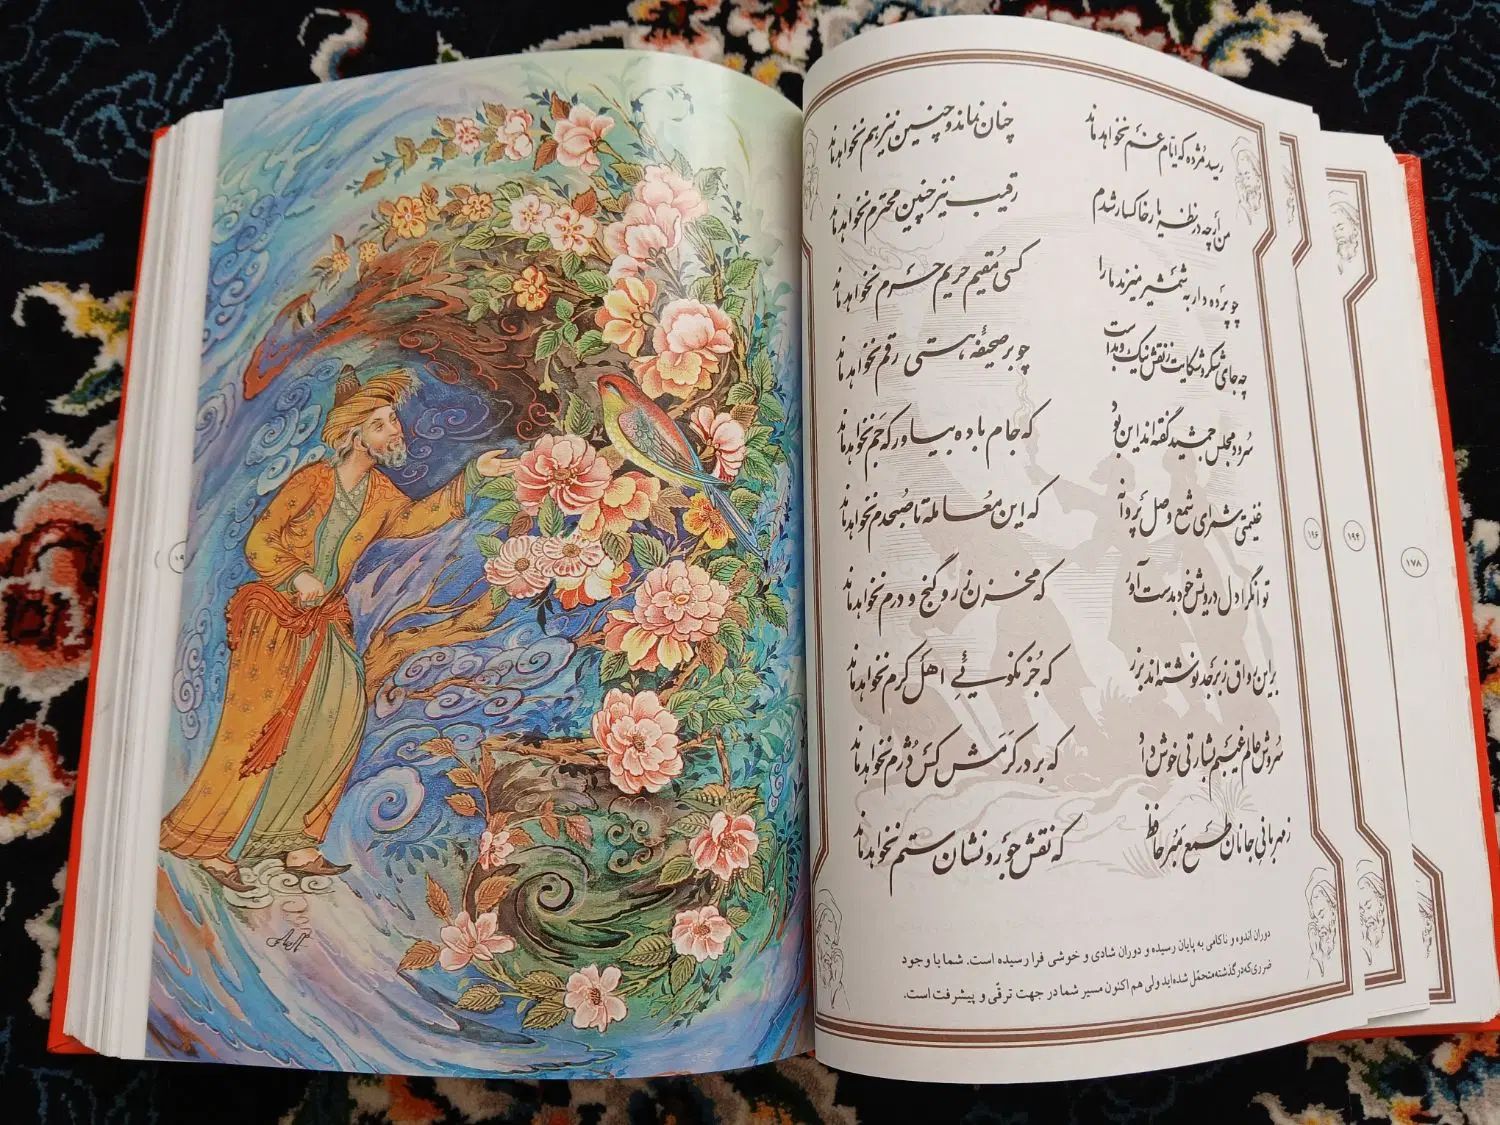 رسید مژده که ایام غم نخواهد ماند چنان نماند و چنین نیز هم نخواهد ماند
من ار چه در نظر یار خاکسار شدم رقیب نیز چنین محترم نخواهد ماند
چو پرده دار به شمشیر میزند همه را کسی مقیم حریم حرم نخواهد ماند
چه جای شکر و شکایت ز نقش نیک و بد است چو بر صحیفهٔ هستی رقم نخواهد ماند
سرود مجلس جمشید گفته‌اند این بود که جام باده بیاور که جم نخواهد ماند
غنیمتی شمر ای شمع وصل پروانه که این معامله تا صبحدم نخواهد ماند
توانگرا دل درویش خود بدست آور که مخزن زر و گنج و درم نخواهد ماند
بر این رواق زبرجد نوشته‌اند بزر که جز نکوئی اهل کرم نخواهد ماند
سروش عالم غیبم بشارتی خوش داد که بر در کرمش کس دژم نخواهد ماند
ز مهربانی جانان طمع مبر حافظ که نقش جور و نشان ستم نخواهد ماند
دوران اندوه و ناکامی به پایان رسیده و دوران شادی و خوشی فرا رسیده است. شما با وجود
ضرری که در گذشته متحمّل شده‌اید ولی هم اکنون مسیر شما در جهت ترقّی و پیشرفت است.
۱۹۶
۱۹۴
۱۷۸